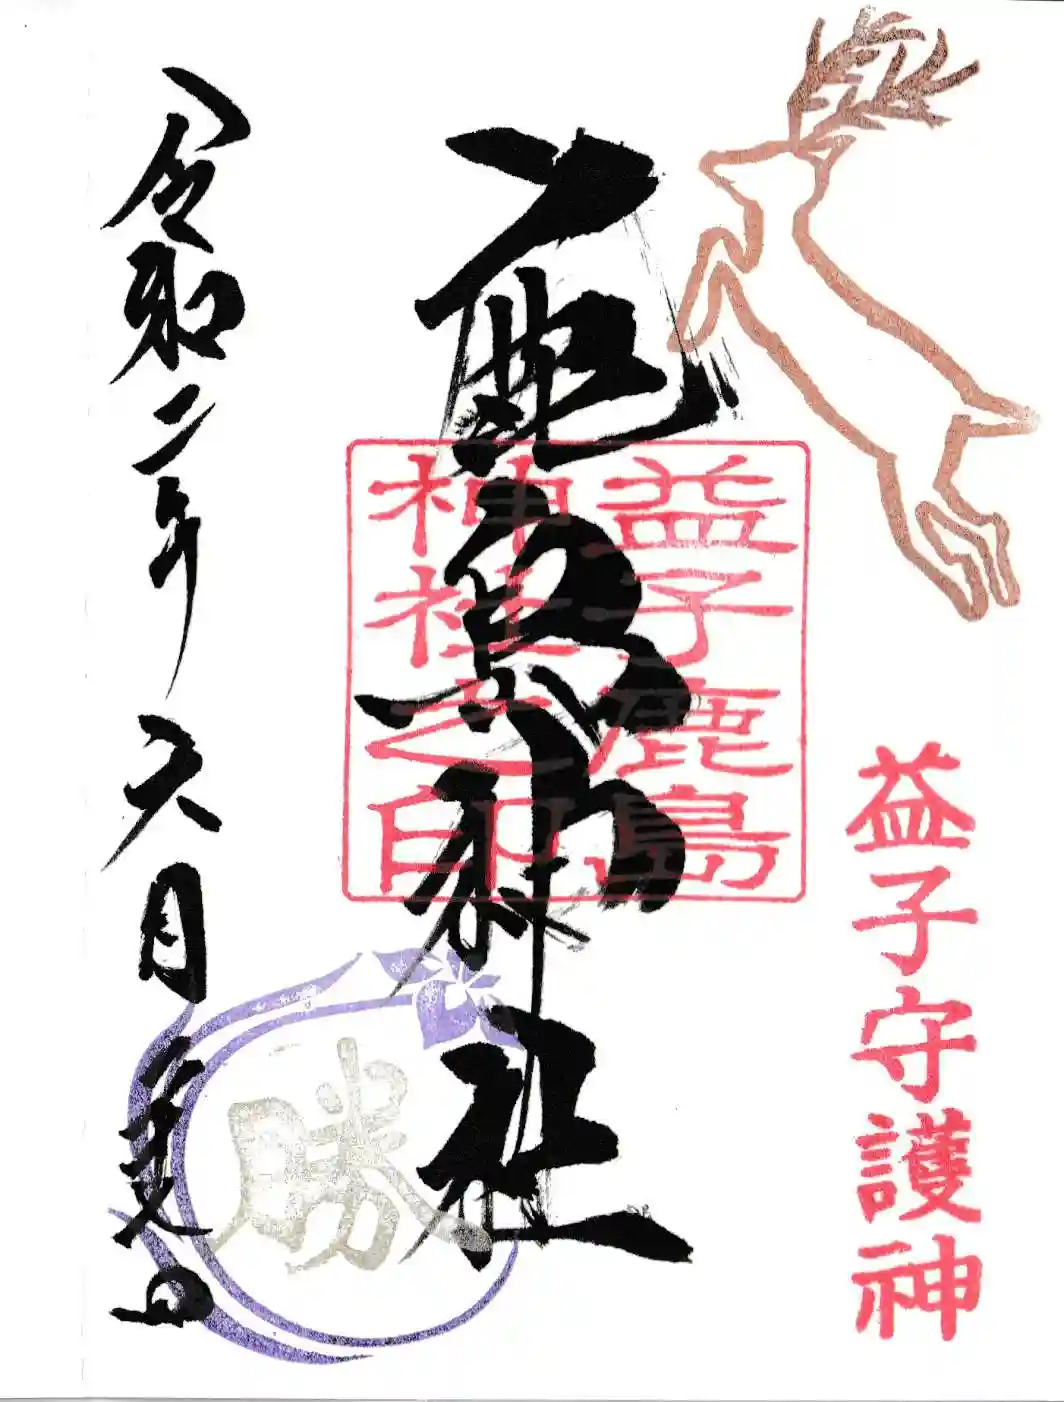 益子守護神
鹿島神社
益子鹿島
神社之印
勝
令和二年六月日